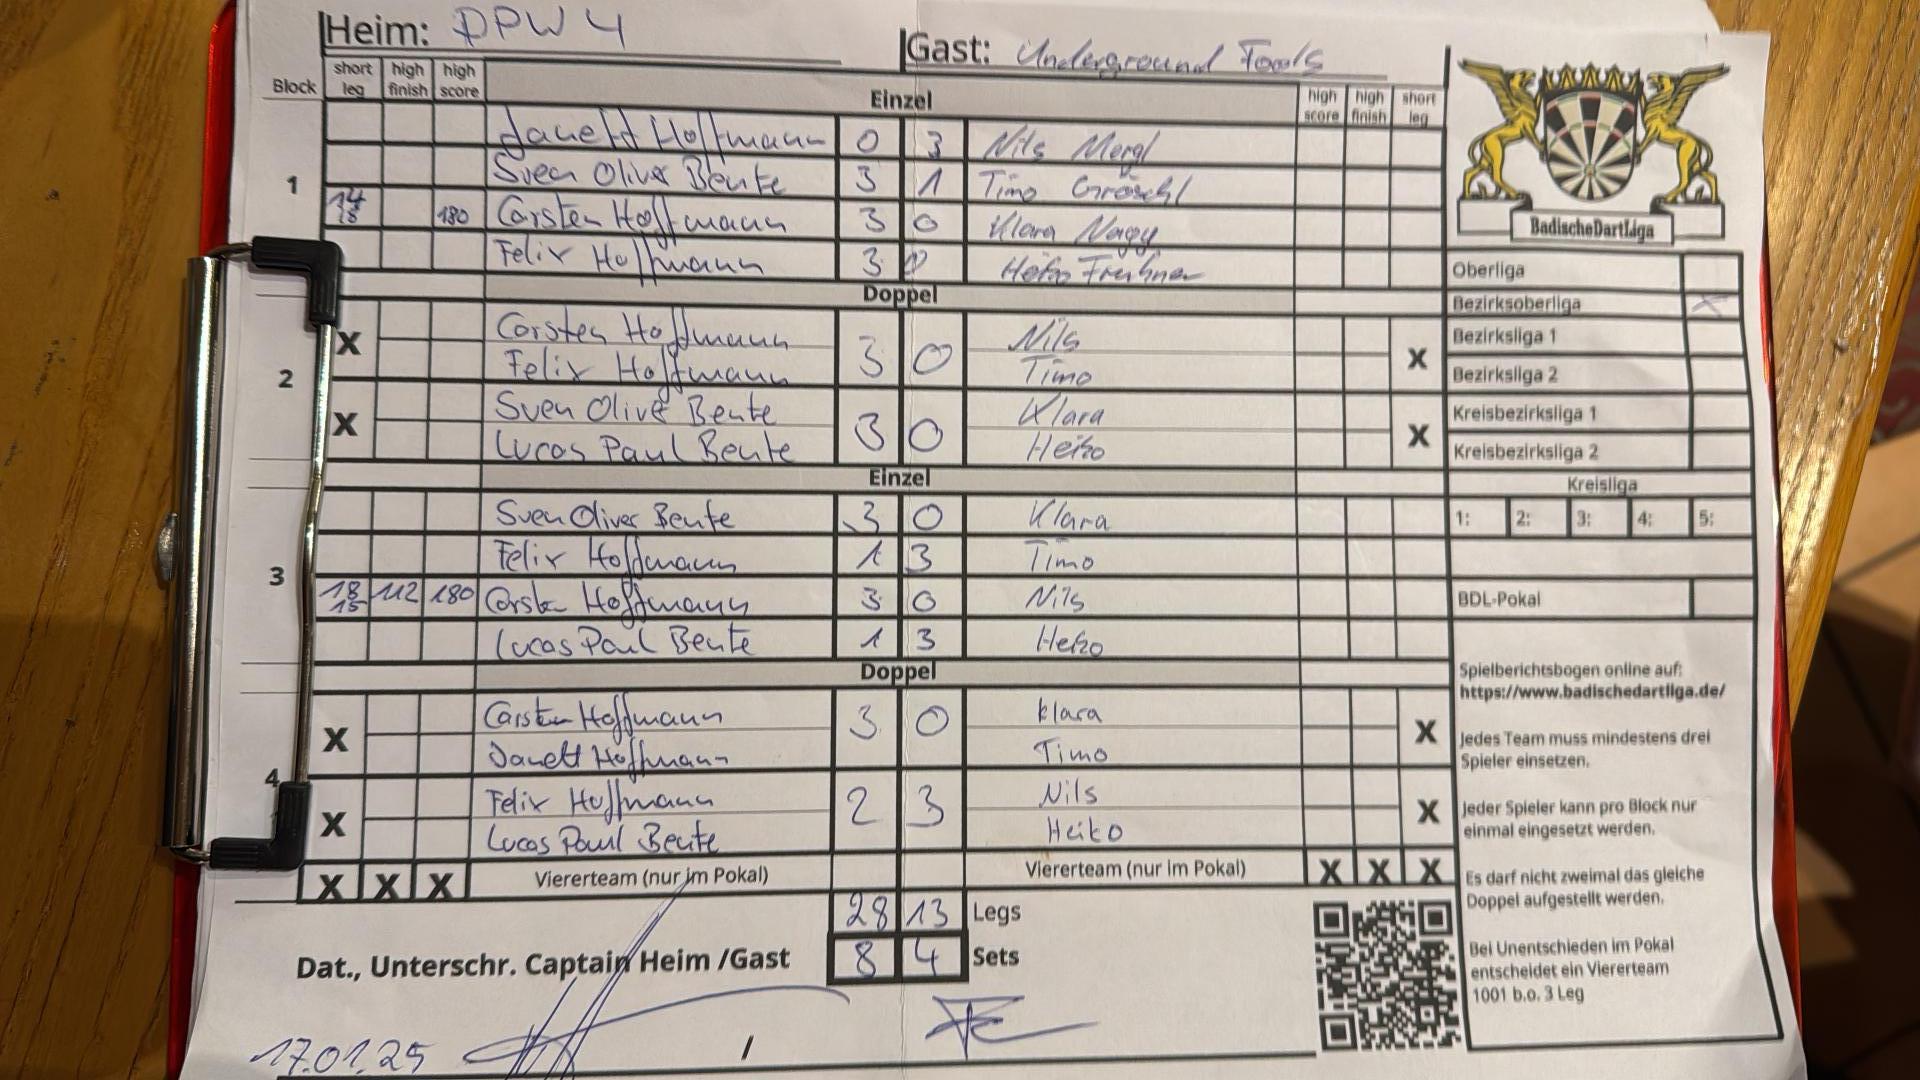 Heim: DPW 4 Gast: Underground Fools
Block short leg high finish high score Einzel high score high finish short leg
Janett Hoffmann 0 3 Nils Mergl
1 Sven Oliver Bente 3 1 Timo Gröschl
14 18 180 Carsten Hoffmann 3 0 Klara Nagy
Felix Hoffmann 3 0 Heiko
Doppel
2
X Carsten Hoffmann 3 0 Nils X
Felix Hoffmann Timo
X Sven Oliver Bente 3 0 Klara X
Lucas Paul Bente Heiko
Einzel
Sven Oliver Bente 3 0 Klara
Felix Hoffmann 1 3 Timo
3 18 15 112 180 Carsten Hoffmann 3 0 Nils
Lucas Paul Bente 1 3 Heiko
Doppel
X Carsten Hoffmann 3 0 Klara X
Janett Hoffmann Timo
4
X Felix Hoffmann 2 3 Nils X
Lucas Paul Bente Heiko
X X X Vierterteam (nur im Pokal) Vierterteam (nur im Pokal) X X X
28 13 Legs
Dat., Unterschr. Captain Heim /Gast 8 4 Sets
17.01.25 /
BadischeDartLiga
Oberliga
Bezirksoberliga X
Bezirksliga 1
Bezirksliga 2
Kreisbezirksliga 1
Kreisbezirksliga 2
Kreisliga
1: 2: 3: 4: 5:
BDL-Pokal
Spielberichtsbogen online auf:
https://www.badischedartliga.de/
Jedes Team muss mindestens drei
Spieler einsetzen.
Jeder Spieler kann pro Block nur
einmal eingesetzt werden.
Es darf nicht zweimal das gleiche
Doppel aufgestellt werden.
Bei Unentschieden im Pokal
entscheidet ein Viererteam
1001 b.o. 3 Leg